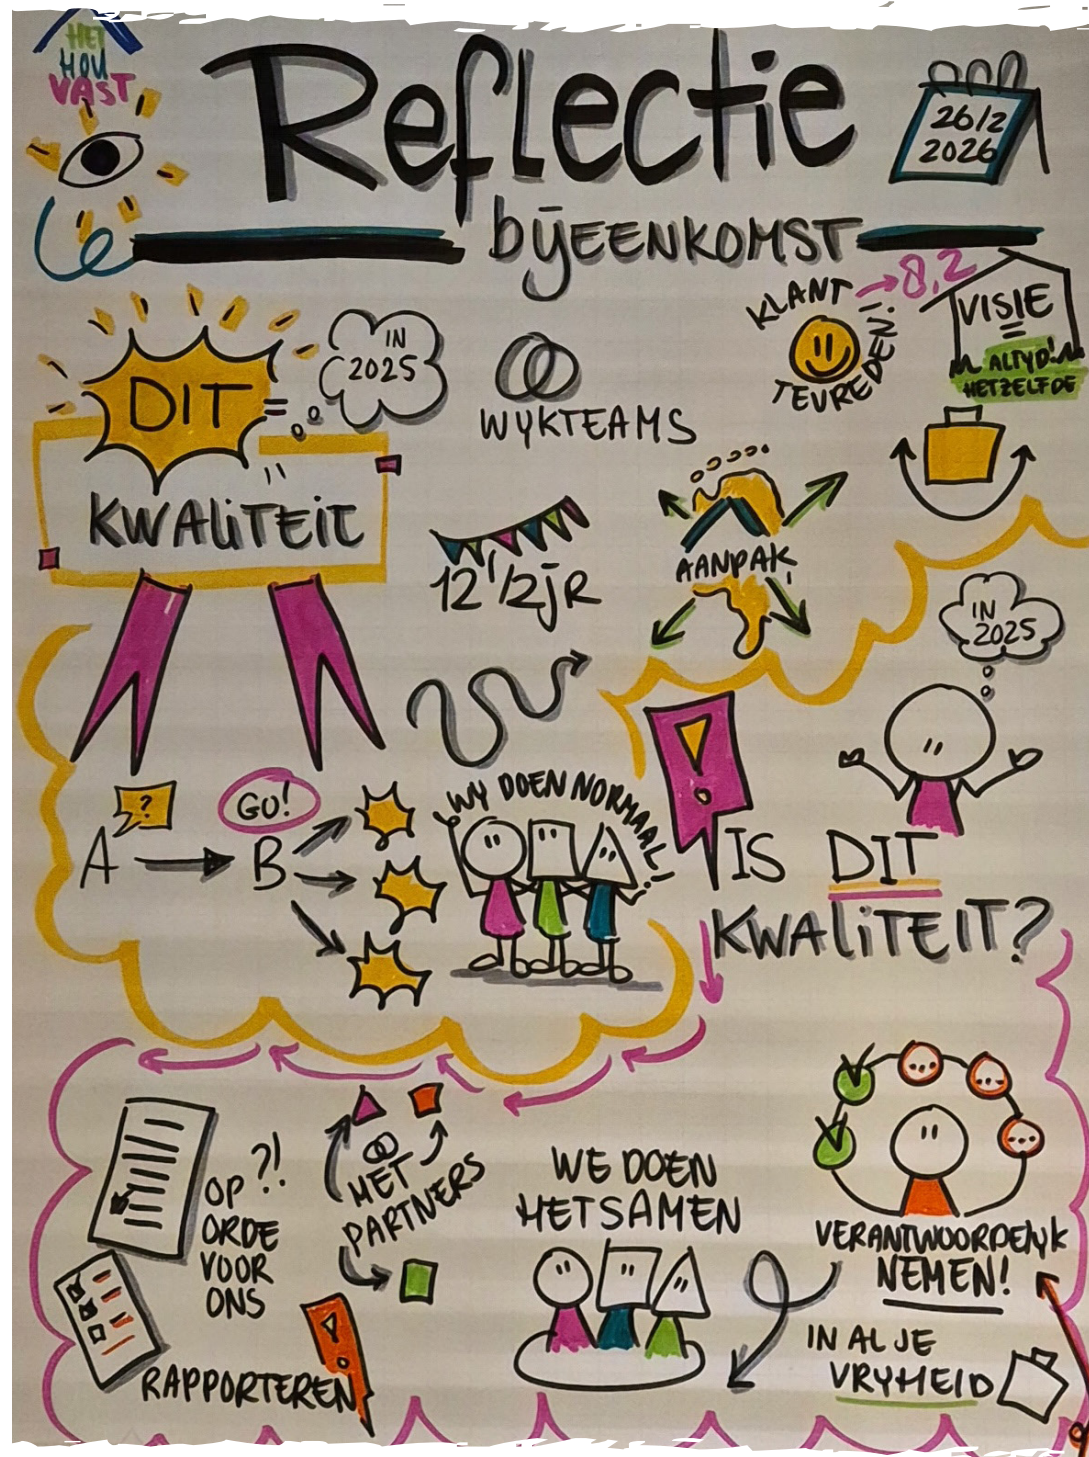 HET
HOU
VAST
Reflectie
bijEENKOMST
26/2
2026
DIT =
IN
2025
KWALiTEiT
WYKTEAMS
KLANT
TEVREDEN!
8,2
VISIE
=
ALTYD!
HETZELFDE
12 1/2 jR
AANPAK
IN
2025
A
?
B
GO!
WY DOEN NORMAAL!
!
IS DIT
KWALiTEIT?
OP ?!
ORDE
VOOR
ONS
RAPPORTEREN
!
MET
PARTNERS
WE DOEN
HET SAMEN
VERANTWOORDELYK
NEMEN!
IN AL JE
VRYHEID